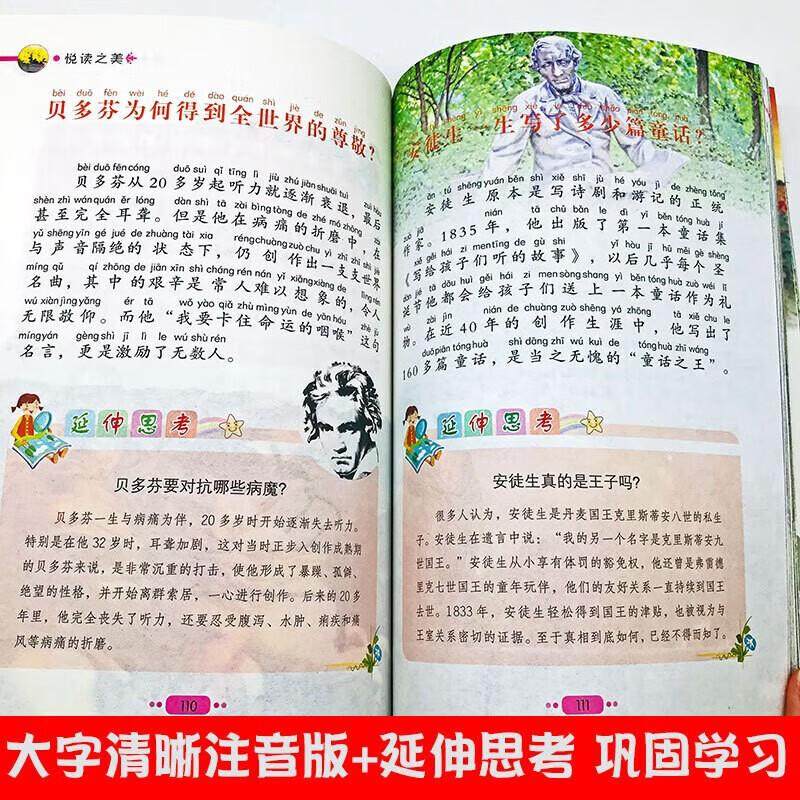 悦读之美
bèi duō fēn wèi hé dé dào quán shì jiè de zūn jìng
贝多芬为何得到全世界的尊敬？
bèi duō fēn cóng duō suì qǐ tīng lì jiù zhú jiàn shuāi tuì
贝多芬从 20 多岁起听力就逐渐衰退，最后
shèn zhì wán quán ěr lóng dàn shì tā zài bìng tòng de zhé mó zhōng
甚至完全耳聋。但是他在病痛的折磨中，在
yǔ shēng yīn gé jué de zhuàng tài xia réng chuàng zuò chu yì zhī zhī shì jiè
与声音隔绝的状态下，仍创作出一支支世界
míng qǔ qí zhōng de jiān xīn shì cháng rén nán yǐ xiǎng xiàng de
名曲，其中的艰辛是常人难以想象的，令人
wú xiàn jìng yǎng ér tā wǒ yào qiǎ zhù mìng yùn de yān hóu zhè jù
无限敬仰。而他“我要卡住命运的咽喉”这句
míng yán gèng shì jī lì le wú shù rén
名言，更是激励了无数人。
延伸思考
贝多芬要对抗哪些病魔？
贝多芬一生与病痛为伴，20 多岁时开始逐渐失去听力。
特别是在他 32 岁时，耳聋加剧，这对当时正步入创作成熟期
的贝多芬来说，是非常沉重的打击，使他形成了暴躁、孤僻、
绝望的性格，并开始离群索居，一心进行创作。后来的 20 多
年里，他完全丧失了听力，还要忍受腹泻、水肿、痢疾和痛
风等病痛的折磨。
110
安徒生一生写了多少篇童话？
ān tú shēng yuán běn shì xiě shī jù hé yóu jì de zhèng tǒng
安徒生原本是写诗剧和游记的正统
nián tā chū bǎn le dì yī běn tóng huà jí
作家。1835 年，他出版了第一本童话集
xiě gěi hái zi men tīng de gù shi yǐ hòu jī hū měi gè shèng
《写给孩子们听的故事》，以后几乎每个圣
dàn jié tā dōu huì gěi hái zi men sòng shàng yì běn tóng huà zuò wéi lǐ
诞节他都会给孩子们送上一本童话作为礼
nián de chuàng zuò shēng yá zhōng tā xiě chū le
物。在近 40 年的创作生涯中，他写出了
duō piān tóng huà shì dāng zhī wú kuì de tóng huà zhī wáng
160 多篇童话，是当之无愧的“童话之王”。
延伸思考
安徒生真的是王子吗？
很多人认为，安徒生是丹麦国王克里斯蒂安八世的私生
子。安徒生在遗言中说：“我的另一个名字是克里斯蒂安九
世国王。”安徒生从小享有体罚的豁免权，他还曾是弗雷德
里克七世国王的童年玩伴，他们的友好关系一直持续到国王
去世。1833 年，安徒生轻松得到国王的津贴，也被视为与
王室关系密切的证据。至于真相到底如何，已经不得而知了。
111
大字清晰注音版+延伸思考 巩固学习